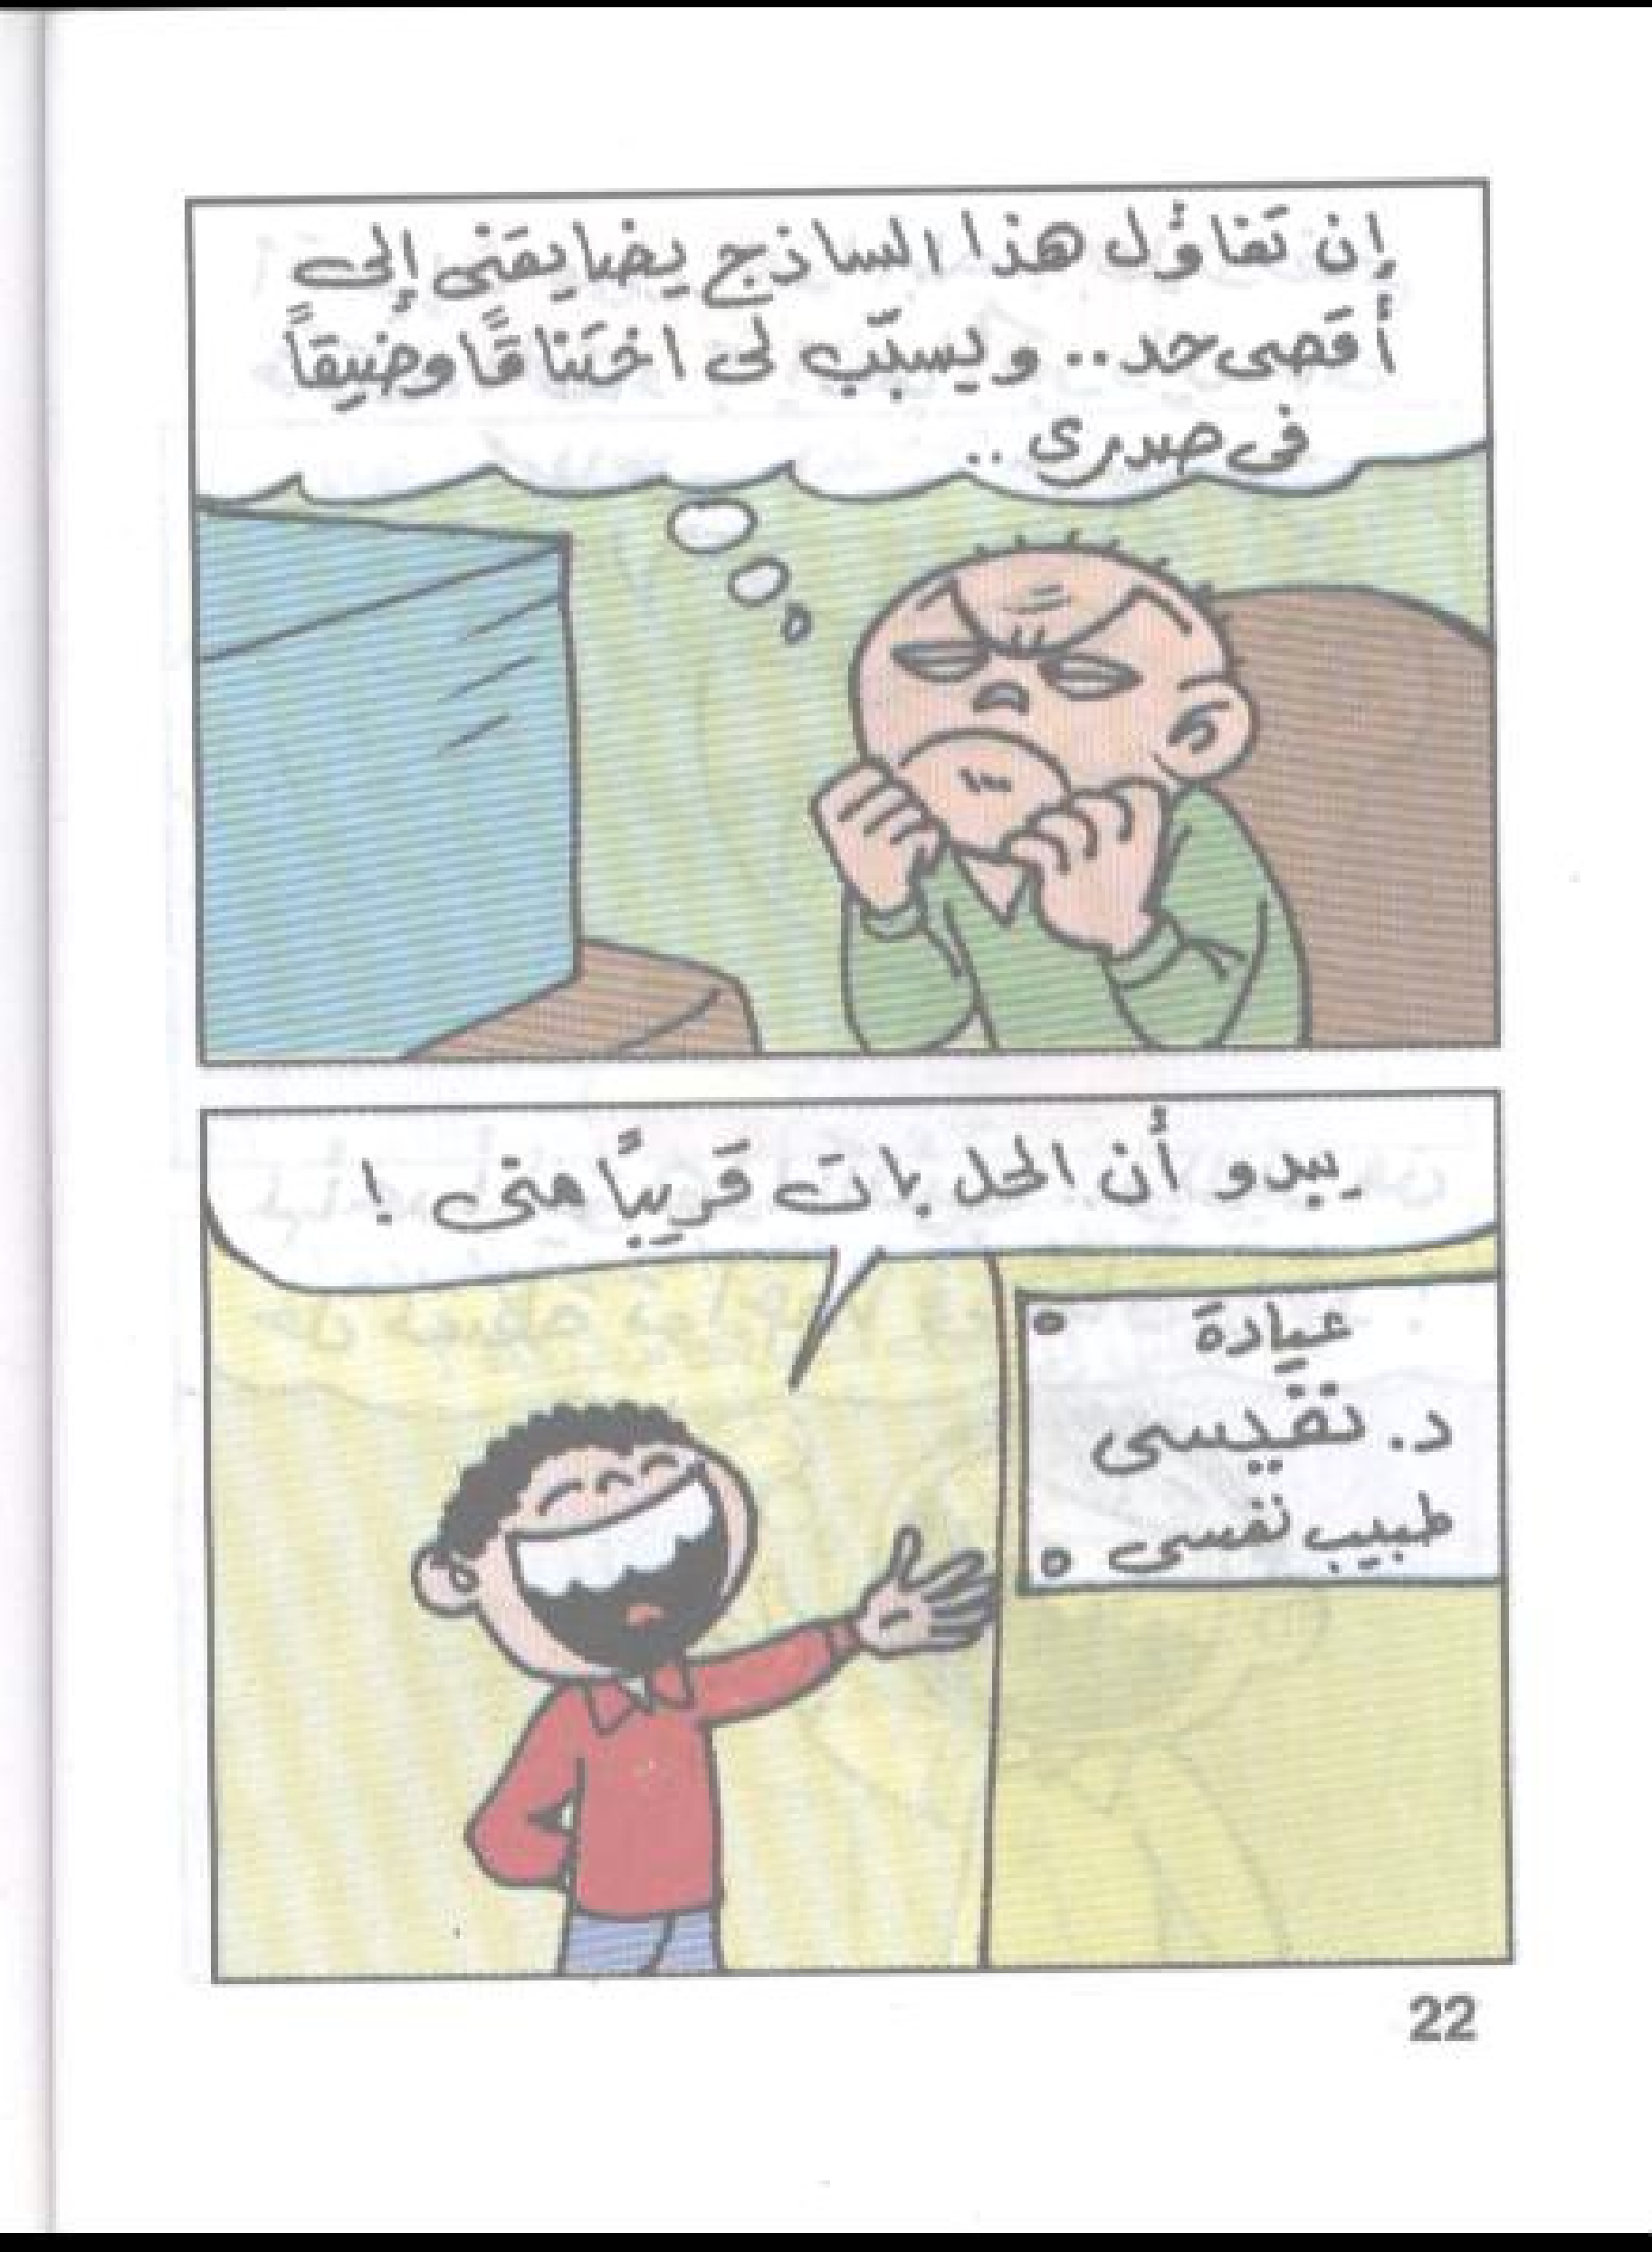 إن تَفاؤل هذا الساذج يضايقنى إلى
أقصى حد.. ويسبّب لى اختناقًا وضيقاً
فى صدرى ..
يبدو أن الحل بات قريبًا منى !
عيادة
د. نفيسى
طبيب نفسى
22